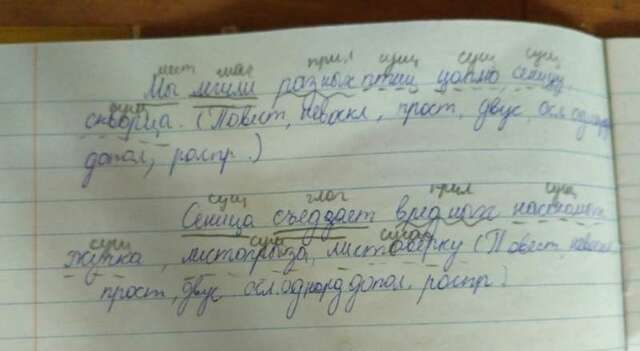 мест глаг прил сущ сущ сущ
Мы лепили разных птиц цаплю, синицу,
сущ
скворца. (Повест, невоскл, прост, двус, осл. однор
допол, распр.)
сущ глаг прил сущ
Сеница съеддает вредного насеком
сущ сущ сущ
жучка, листогрыза, листовёрку (Повест, невоскл
прост, двус осл. однорд допол. распр)